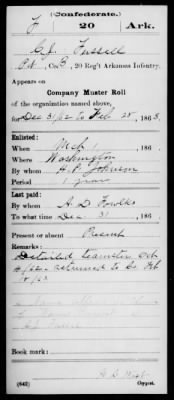 (Confederate.)
F 20 Ark.
C. J. Fussell
Pvt., Co. B, 20 Reg't Arkansas Infantry.
Appears on
Company Muster Roll
of the organization named above,
for Dec 31/62 to Feb 28, 1863.
Enlisted:
When Mch 1, 186
Where Washington
By whom H. P. Johnson
Period 1 year
Last paid:
By whom A. D.
To what time Dec 31, 186
Present or absent Present
Remarks:
Detailed teamster Oct
/62 returned to Co Feb
/63
Book mark:
(642) Copyist.